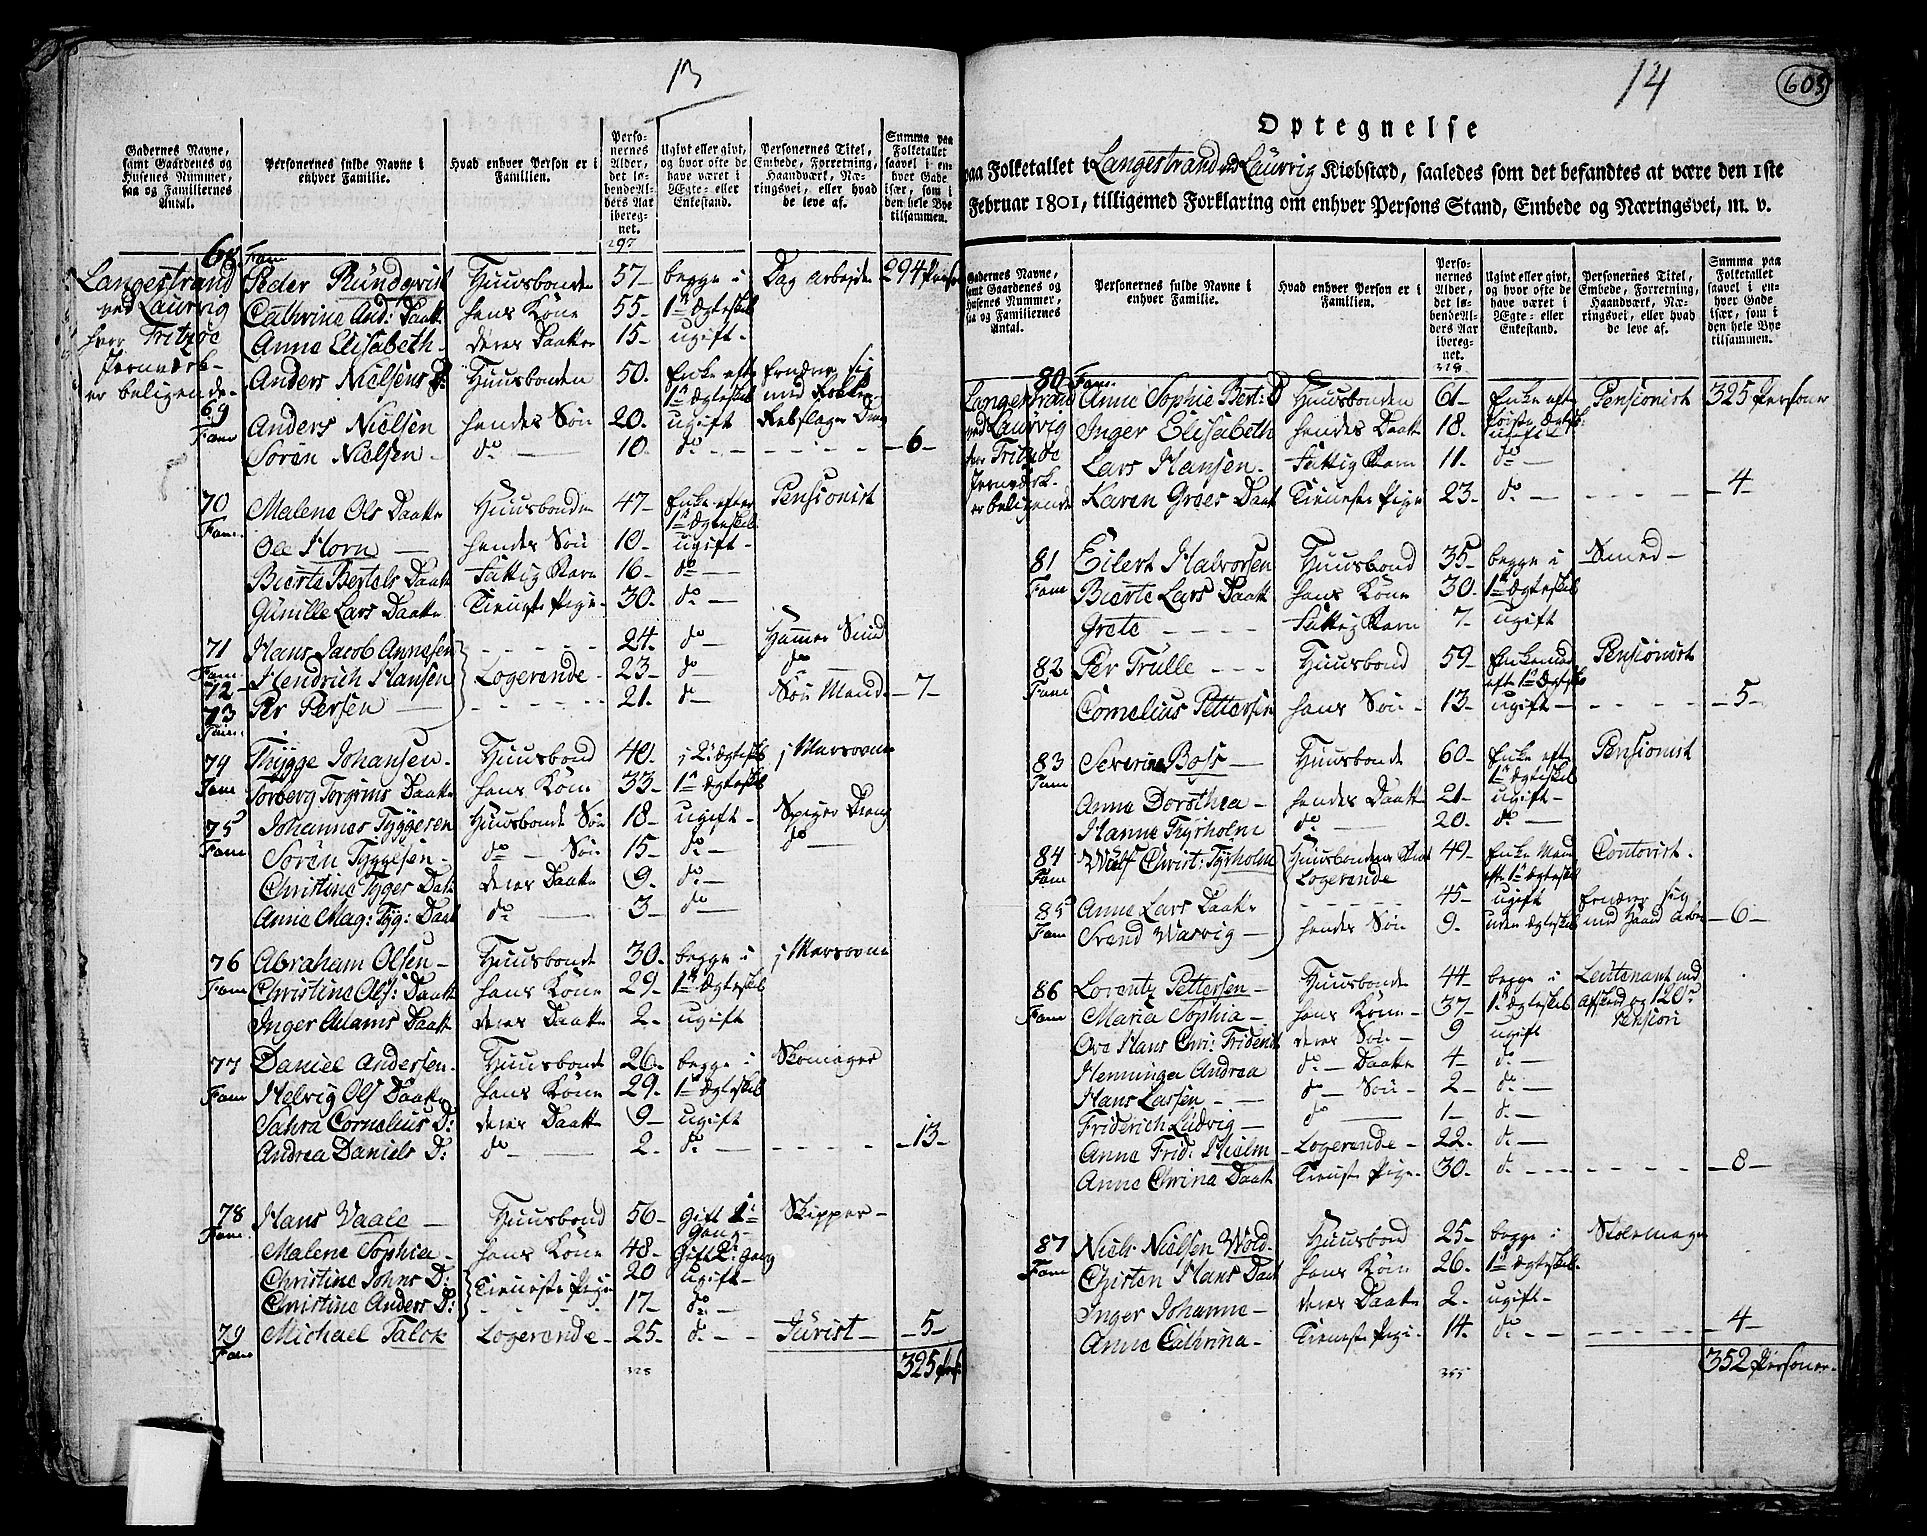 13
Gadernes Navne, samt Gaardenes og Husenes Nummer, saa og Familiernes Antal.
Personernes fulde Navne i enhver Familie.
Hvad enhver Person er i Familien.
Personernes Alder, det løbende Alders Aar iberegnet.
Ugivt eller givt, og hvor ofte de have været i Ægte- eller Enkestand.
Personernes Titel, Embede, Forretning, Haandværk, Næringsvei, eller hvad de leve af.
Summa paa Folketallet saavel i enhver Gade især, som i den hele Bye tilsammen.
297
Langestrand ved Laurvig hvor Fritzøe Jernværk er beligende
68 Fam Peder Rundqvist Huusbonde 57 begge i Dag arbejder 294 Perso
Cathrine And: Daatt hans Kone 55 1ste Ægteskab
Anne Elisabeth deres Daatter 15 ugift
Anders Nielsens D: Huusbonden 50 Enke eft 1ste Ægteskab Ernærer sig med
69 Fam Anders Nielsen hendes Søn 20 ugift Rebslager Dreng
Søren Nielsen do 10 do - 6 -
70 Fam Malene Ols Daatte Huusbonde 47 Enke efter 1ste Ægteskab Pensionist
Ole Horn hendes Søn 10 ugift
Bierte Bertels Daatt Fattig Barn 16 do
Gunille Lars Daatte Tieneste Pige 30 do
71 Fam Hans Jacob Annesen 24 do Hammer Smed
72 Hendrich Hansen Logerende 23 do do
73 Fam Per Persen 21 do Søe Mand - 7 -
74 Fam Thygge Johansen Huusbond 40 i 2det Ægteskab i Marsovne
Torberg Torgrims Daatte hans Kone 33 1ste Ægteskab
75 Fam Johannes Tyggesen Huusbonds Søn 18 ugift Spiger Dreng
Søren Tyggesen do Søn 15 do do
Christine Tygges Datt deres Daatte 9 do
Anne Mag: Tyg: Daatt do 3 do
76 Fam Abraham Olsen Huusbonde 30 begge i i Marsovne
Christine Ols: Daatt hans Kone 29 1ste Ægteskab
Inger Adams Daatt deres Daatt 2 ugift
77 Fam Daniel Andersen Huusbonde 26 begge i Skomager
Helvig Ols Daatte hans Kone 29 1ste Ægteskab
Sahra Cornelius D: deres Daatt 9 ugift
Andrea Daniels D: do 2 do - 13 -
78 Fam Hans Vaale Huusbond 56 Gift 1ste Gang Skipper
Malene Sophia hans Kone 48 Gift 2: Gang
Christine Johns D: Tieneste Pige 20 ugift
Christine Anders D: 17 do
79 Fam Michael Falck Logerende 25 do Jurist - 5 -
328
325 Pers
14
603
Optegnelse
paa Folketallet i Langestrand ved Laurvig Kiøbstæd, saaledes som det befandtes at være den 1ste
Februar 1801, tilligemed Forklaring om enhver Persons Stand, Embede og Næringsvei, m. v.
Gadernes Navne, samt Gaardenes og Husenes Nummer, saa og Familiernes Antal.
Personernes fulde Navne i enhver Familie.
Hvad enhver Person er i Familien.
Personernes Alder, det løbende Alders Aar iberegnet.
Ugivt eller givt, og hvor ofte de have været i Ægte- eller Enkestand.
Personernes Titel, Embede, Forretning, Haandværk, Næringsvei, eller hvad de leve af.
Summa paa Folketallet saavel i enhver Gade især, som i den hele Bye tilsammen.
328
Langestrand ved Laurvig hvor Fritzøe Jernværk er beligende
80 Fam. Anne Sophie Bert: D Huusbonden 61 Enke eft første Ægtesk: Pensionist 325 Personer
Inger Elisabeth hendes Daatt 18 ugift
Lars Hansen Fattig Barn 11 do
Karen Groes Daatt Tieneste Pige 23 do - 4 -
81 Fam Eilert Halvorsen Huusbond 35 begge i Smed
Bierte Lars Daatt hans Kone 30 1ste Ægteskab
Grete Fattig Barn 7 ugift
82 Fam Per Trulle Huusbond 59 Enkemand eft 1ste Ægteskab Pensionist
Cornelius Pettersen hans Søn 13 ugift - 5 -
83 Fam Severina Bols Huusbonde 60 Enke eft 1ste Ægteskab Pensionist
Anna Dorothea hendes Daatt 21 ugift
Hanne Thyrholm do 20 do
84 Fam Wulf Christ: Tyrholm Huusbondens Logerende 49 Enke Man eft 1ste Ægteskab Contorist
85 Fam Anne Lars Daatte 45 ugift Ernærer sig
Svend Warvig hendes Søn 9 uden Ægteskab med Haand Arbei - 6 -
86 Fam Lorentz Pettersen Huusbonde 44 begge i Leutenant med
Maria Sophia hans Kone 37 1ste Ægteskab Afskeed og 120 rd Pension
Ove Hans Chri: Friderich deres Søn 9 ugift
Henninger Andrea do Daatt 4 do
Hans Lassen do Søn 2 do
Friderich Ludvig do 1 do
Anne Frid: Hielm Logerende 22 do
Anne Chrina Daatt Tieneste Pige 30 do - 8 -
87 Fam Niels Nielsen Wold Huusbond 25 begge i Stolemager
Chisten Hans Daat hans Kone 26 1ste Ægteskab
Inger Johanne deres Daatte 2 ugift
Anne Cathrina Tieneste Pige 14 do - 4 -
355
352 Personer